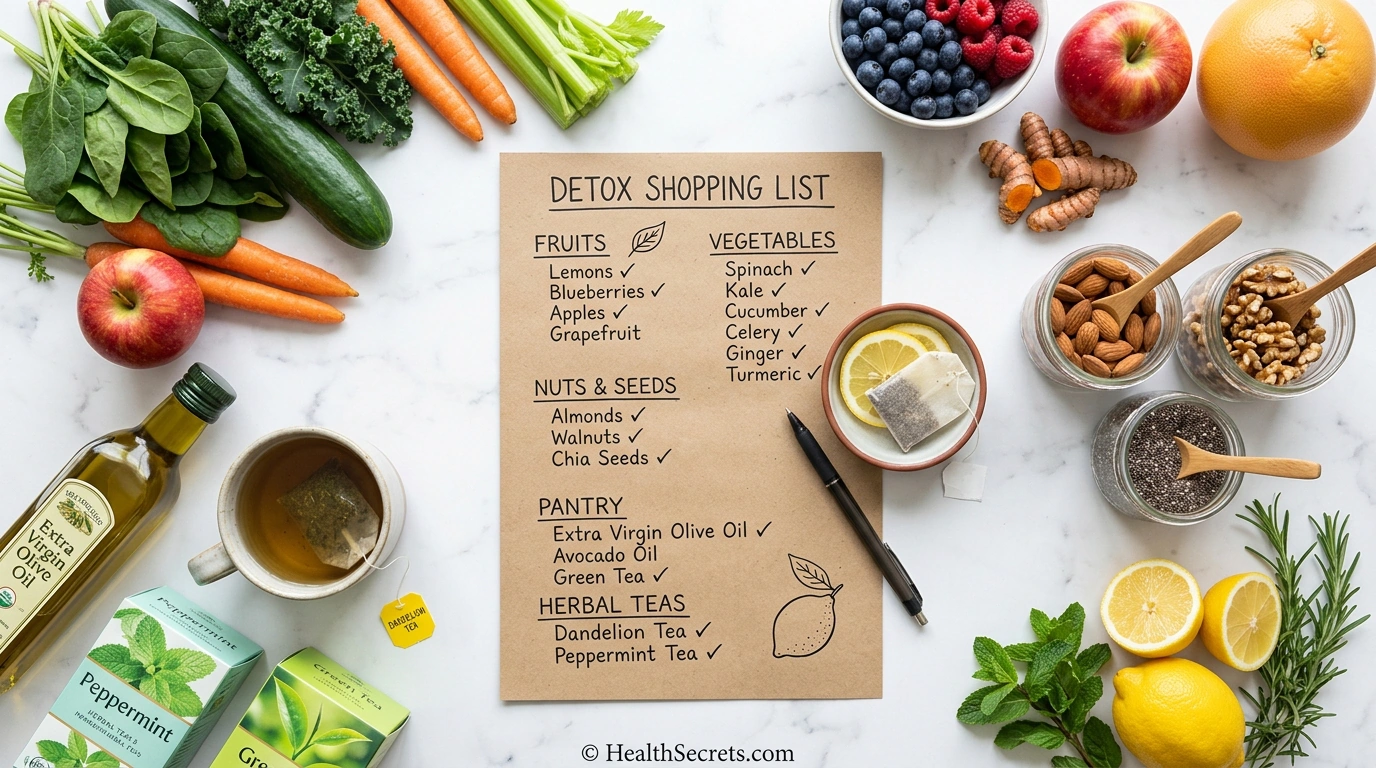 DETOX SHOPPING LIST
FRUITS
Lemons ✓
Blueberries ✓
Apples ✓
Grapefruit
VEGETABLES
Spinach ✓
Kale ✓
Cucumber ✓
Celery ✓
Ginger ✓
Turmeric ✓
NUTS & SEEDS
Almonds ✓
Walnuts ✓
Chia Seeds ✓
PANTRY
Extra Virgin Olive Oil ✓
Avocado Oil
Green Tea ✓
HERBAL TEAS
Dandelion Tea ✓
Peppermint Tea ✓
Extra
Virgin
Olive
Oil
DANDELION
TEA
Peppermint
Peppermint
Green Tea
Gree
© HealthSecrets.com